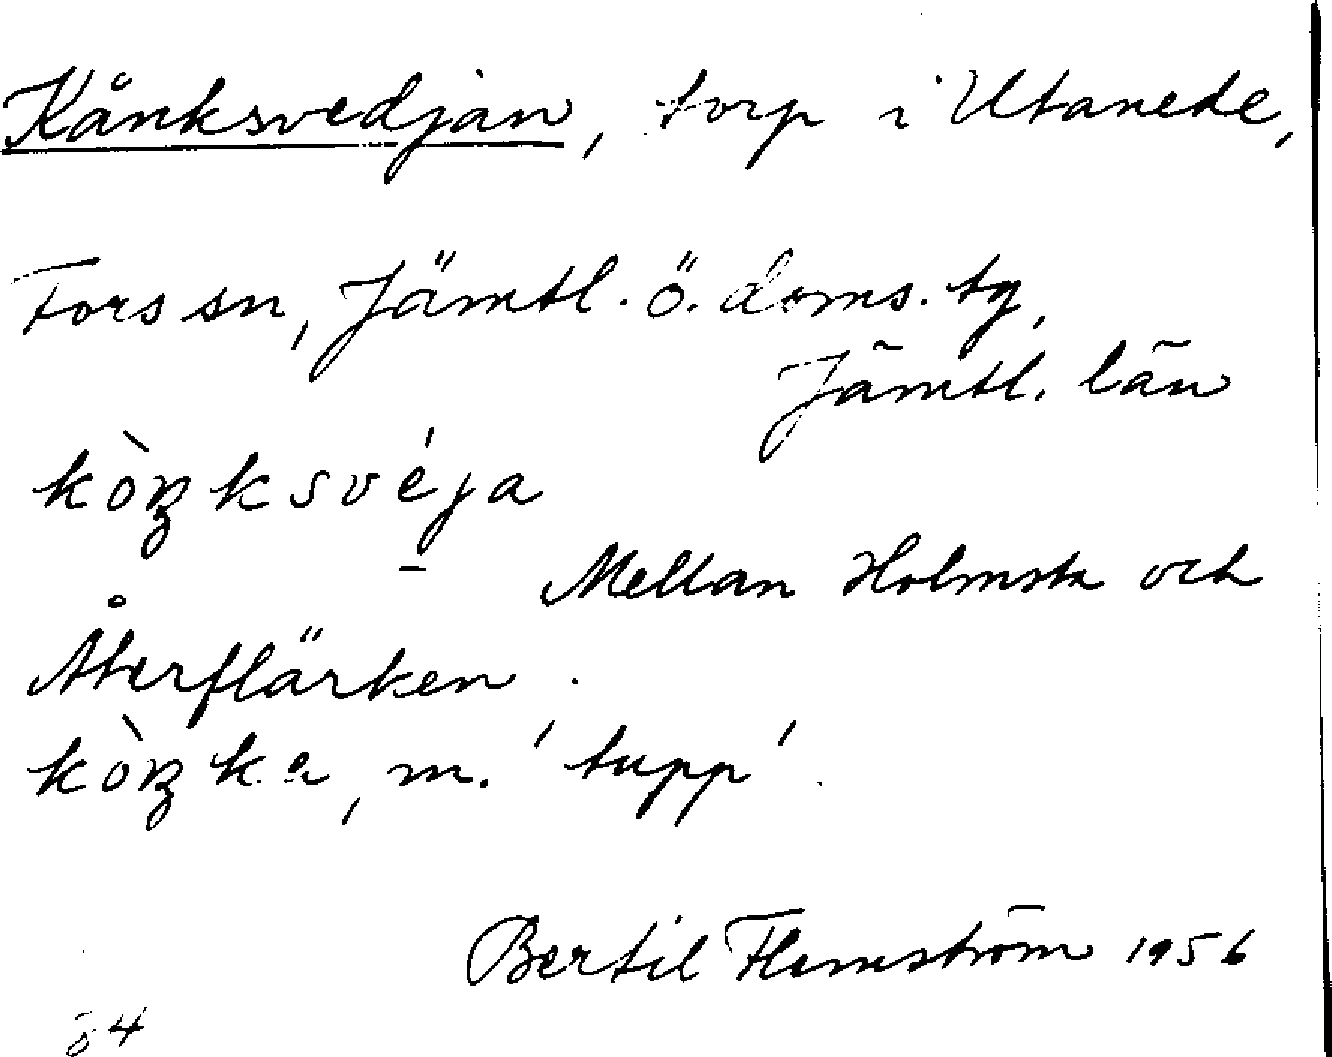 Kånksvedjan, torp i Utanede,
Fors sn, Jämtl. ö. doms. tg,
Jämtl. län
kòŋksvéja
Mellan Holmsta och
Återflärken.
kòŋka, m. 'tupp'.
Bertil Flemström 1956
84